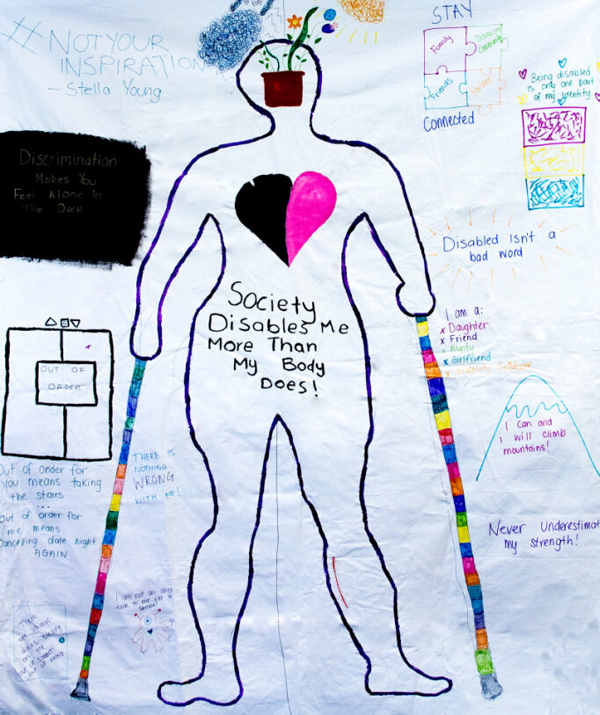 #NOTYOUR
INSPIRATION
- Stella Young
STAY
Family
Disability
Community
Friends
Connected
Being disabled
is only one part
of my identity
Discrimination
Makes You
Feel Alone In
The Dark
Disabled Isn't a
bad word
Society
Disables Me
More Than
My Body
Does!
I am a:
x Daughter
x Friend
x Aunty
x Girlfriend
x University
OUT OF
ORDER
I can and
I will climb
mountains!
Out of order for
you means taking
the stairs
...
Out of order for
me means
Cancelling date night
AGAIN
THERE IS
NOTHING
WRONG
WITH ME!
Never Underestimat
my strength!
I am not an